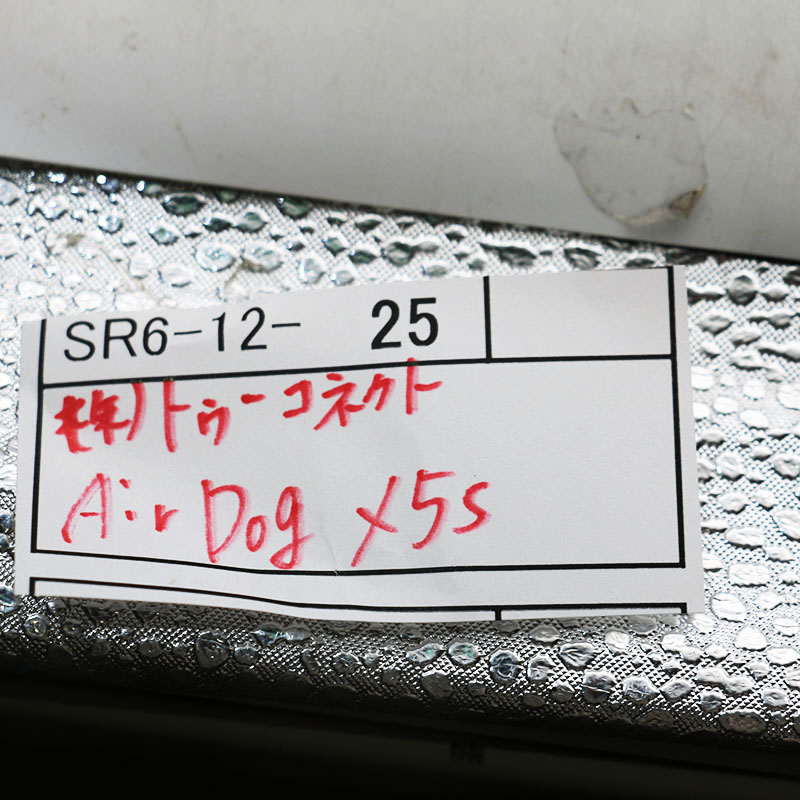 SR6-12- 25
株)トゥーコネクト
Air Dog X5s